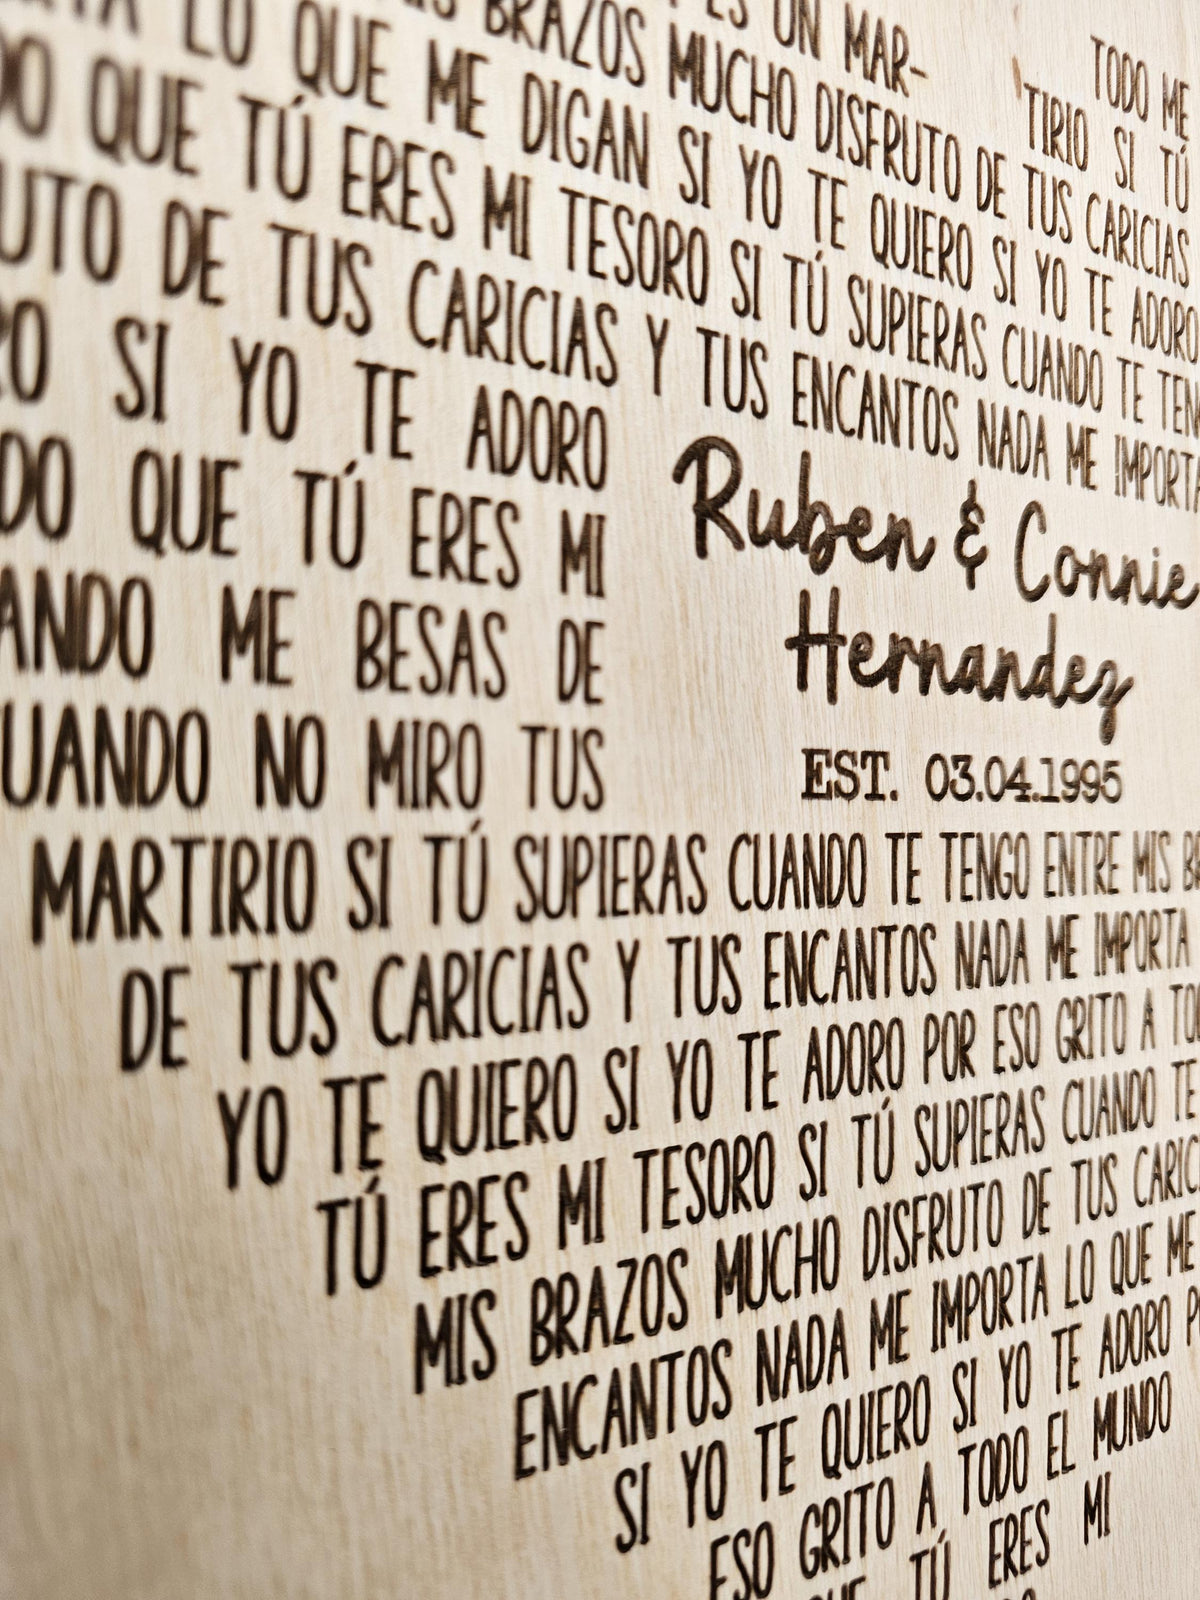 ES UN MAR- TODO ME
BRAZOS MUCHO DISFRUTO DE TUS CARICIAS TIRIO SI TÚ
LO QUE ME DIGAN SI YO TE QUIERO SI YO TE ADORO
QUE TÚ ERES MI TESORO SI TÚ SUPIERAS CUANDO TE TEN
UTO DE TUS CARICIAS Y TUS ENCANTOS NADA ME IMPORTA
RO SI YO TE ADORO
DO QUE TÚ ERES MI
ANDO ME BESAS DE
UANDO NO MIRO TUS
Ruben & Connie
Hernandez
EST. 03.04.1995
MARTIRIO SI TÚ SUPIERAS CUANDO TE TENGO ENTRE MIS BR
DE TUS CARICIAS Y TUS ENCANTOS NADA ME IMPORTA
YO TE QUIERO SI YO TE ADORO POR ESO GRITO A TOD
TÚ ERES MI TESORO SI TÚ SUPIERAS CUANDO TE
MIS BRAZOS MUCHO DISFRUTO DE TUS CARIC
ENCANTOS NADA ME IMPORTA LO QUE ME
SI YO TE QUIERO SI YO TE ADORO P
ESO GRITO A TODO EL MUNDO
QUE TÚ ERES MI